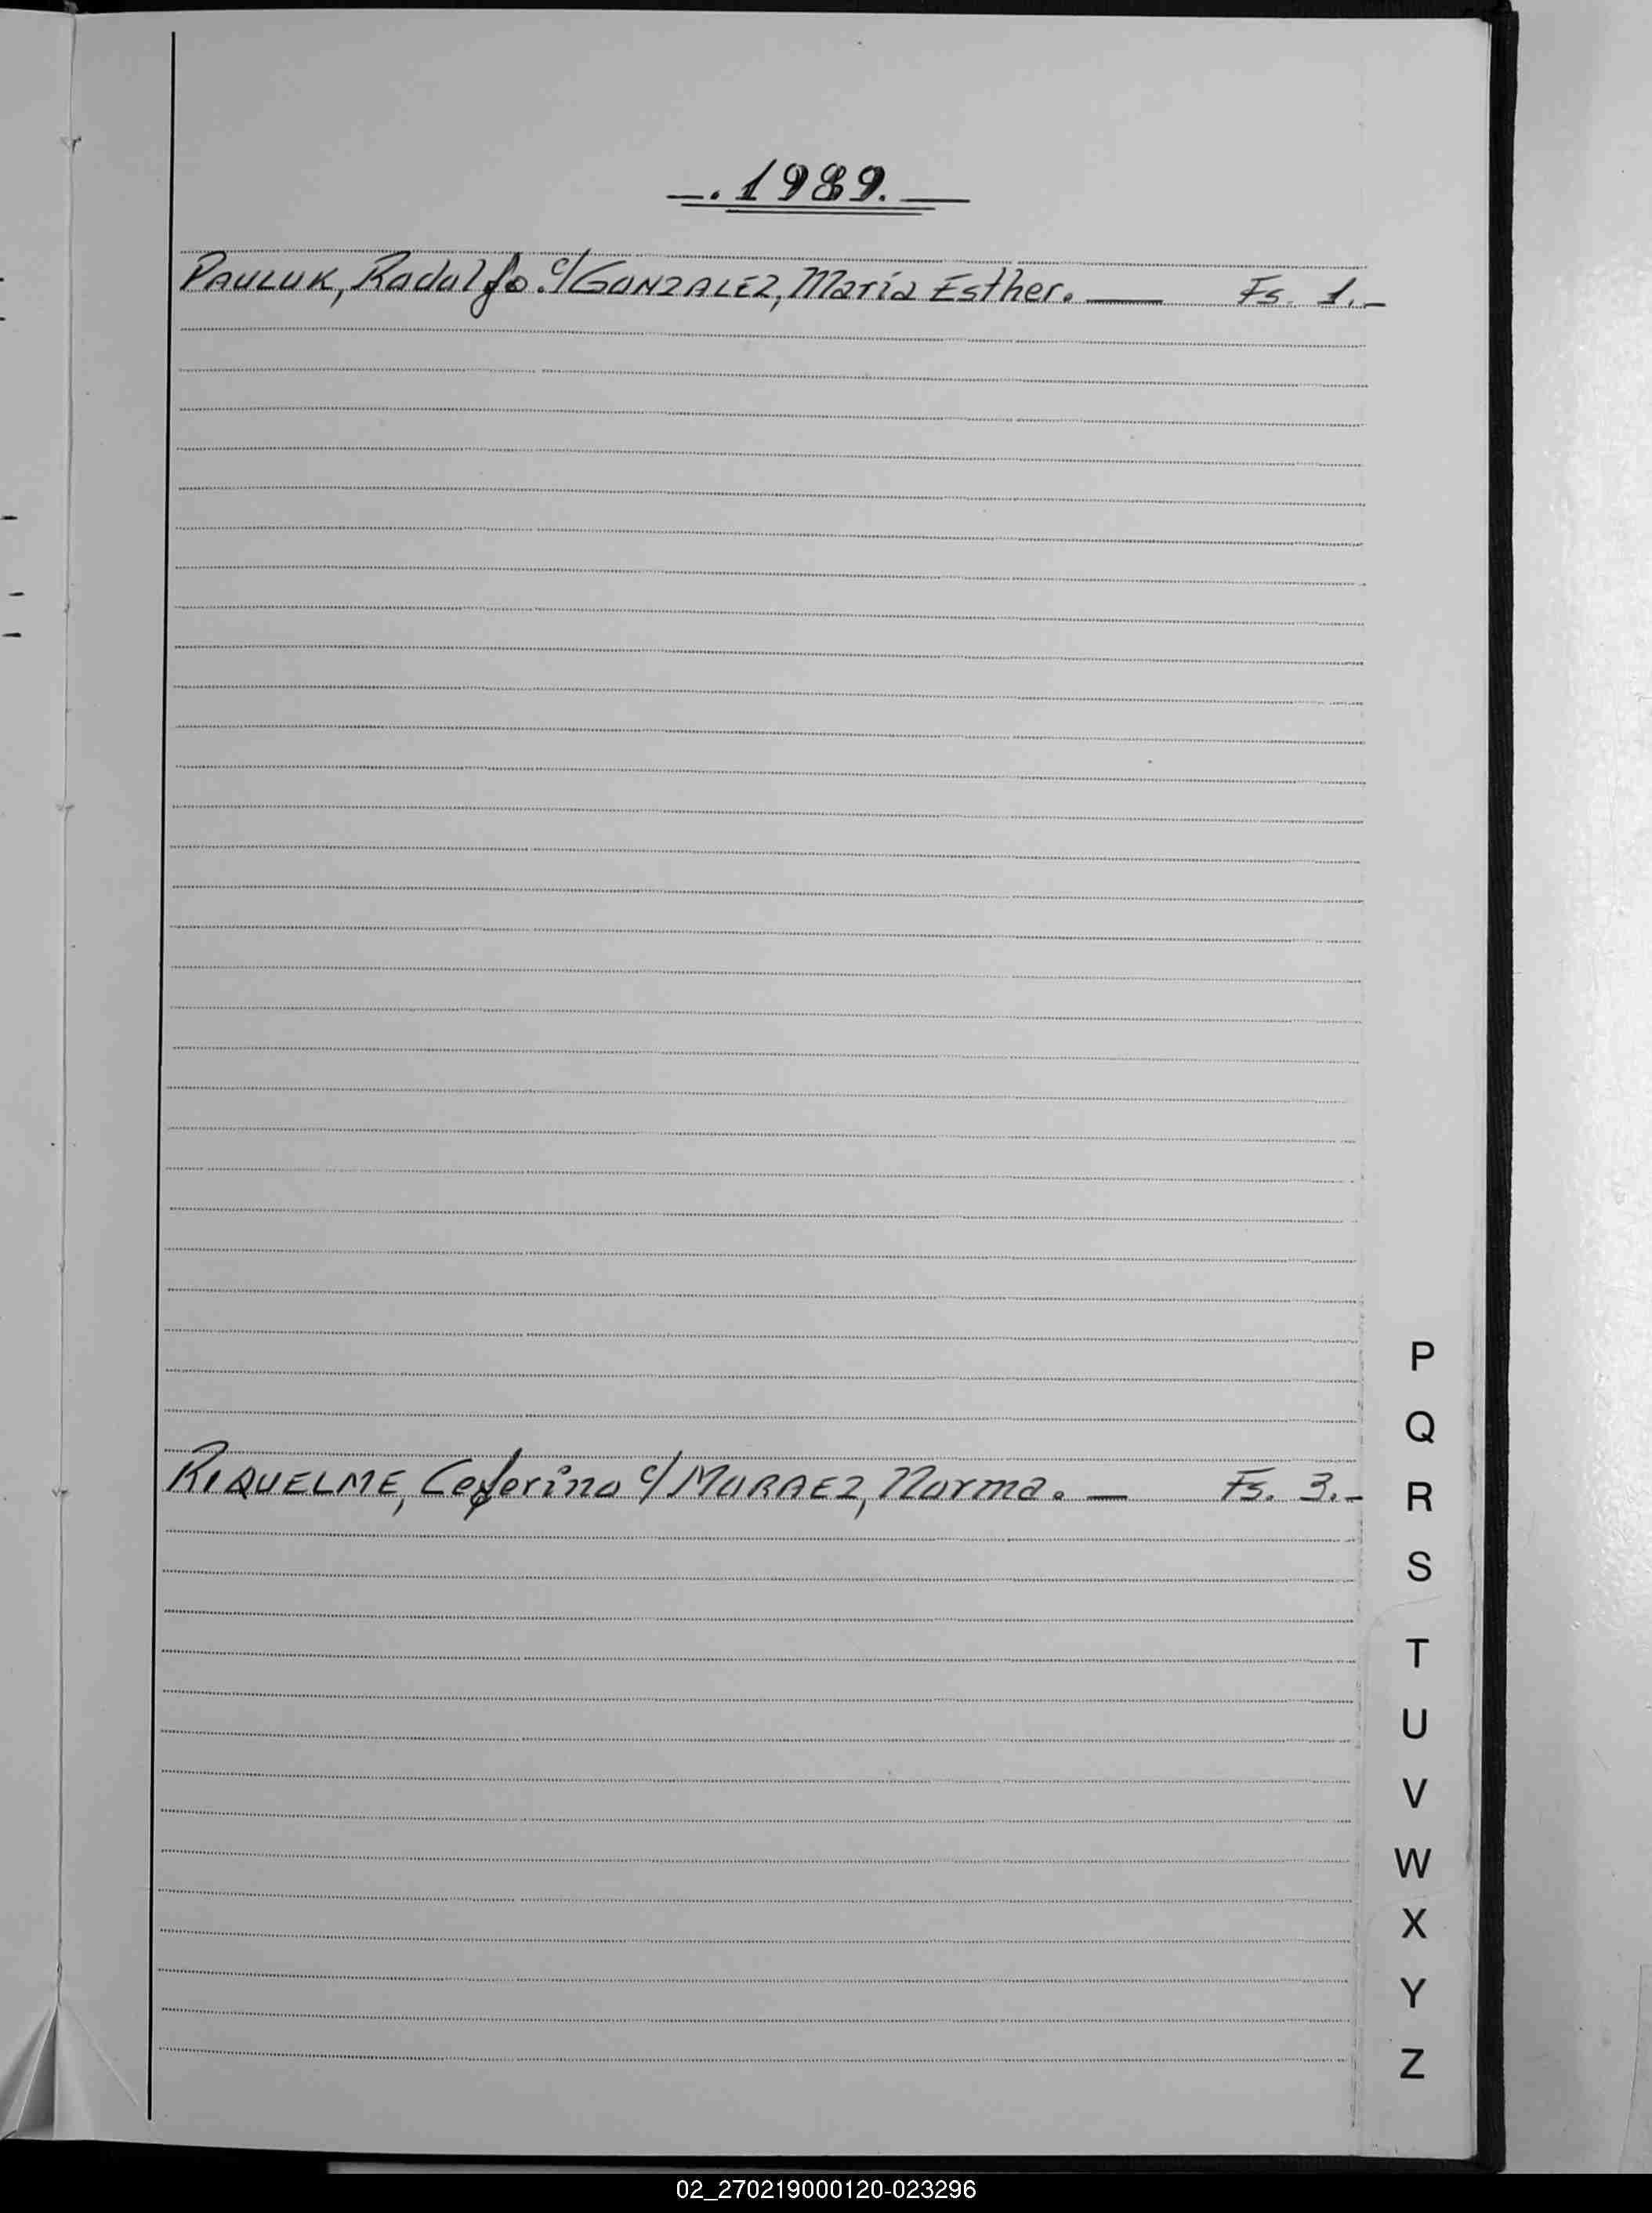 —. 1989. —
PAULUK, Rodolfo. c/ GONZALEZ, María Esther. — Fs. 1.-
P
Q
RIQUELME, Ceferino c/ MORAEZ, Norma. — Fs. 3.-
R
S
T
U
V
W
X
Y
Z
02_270219000120-023296